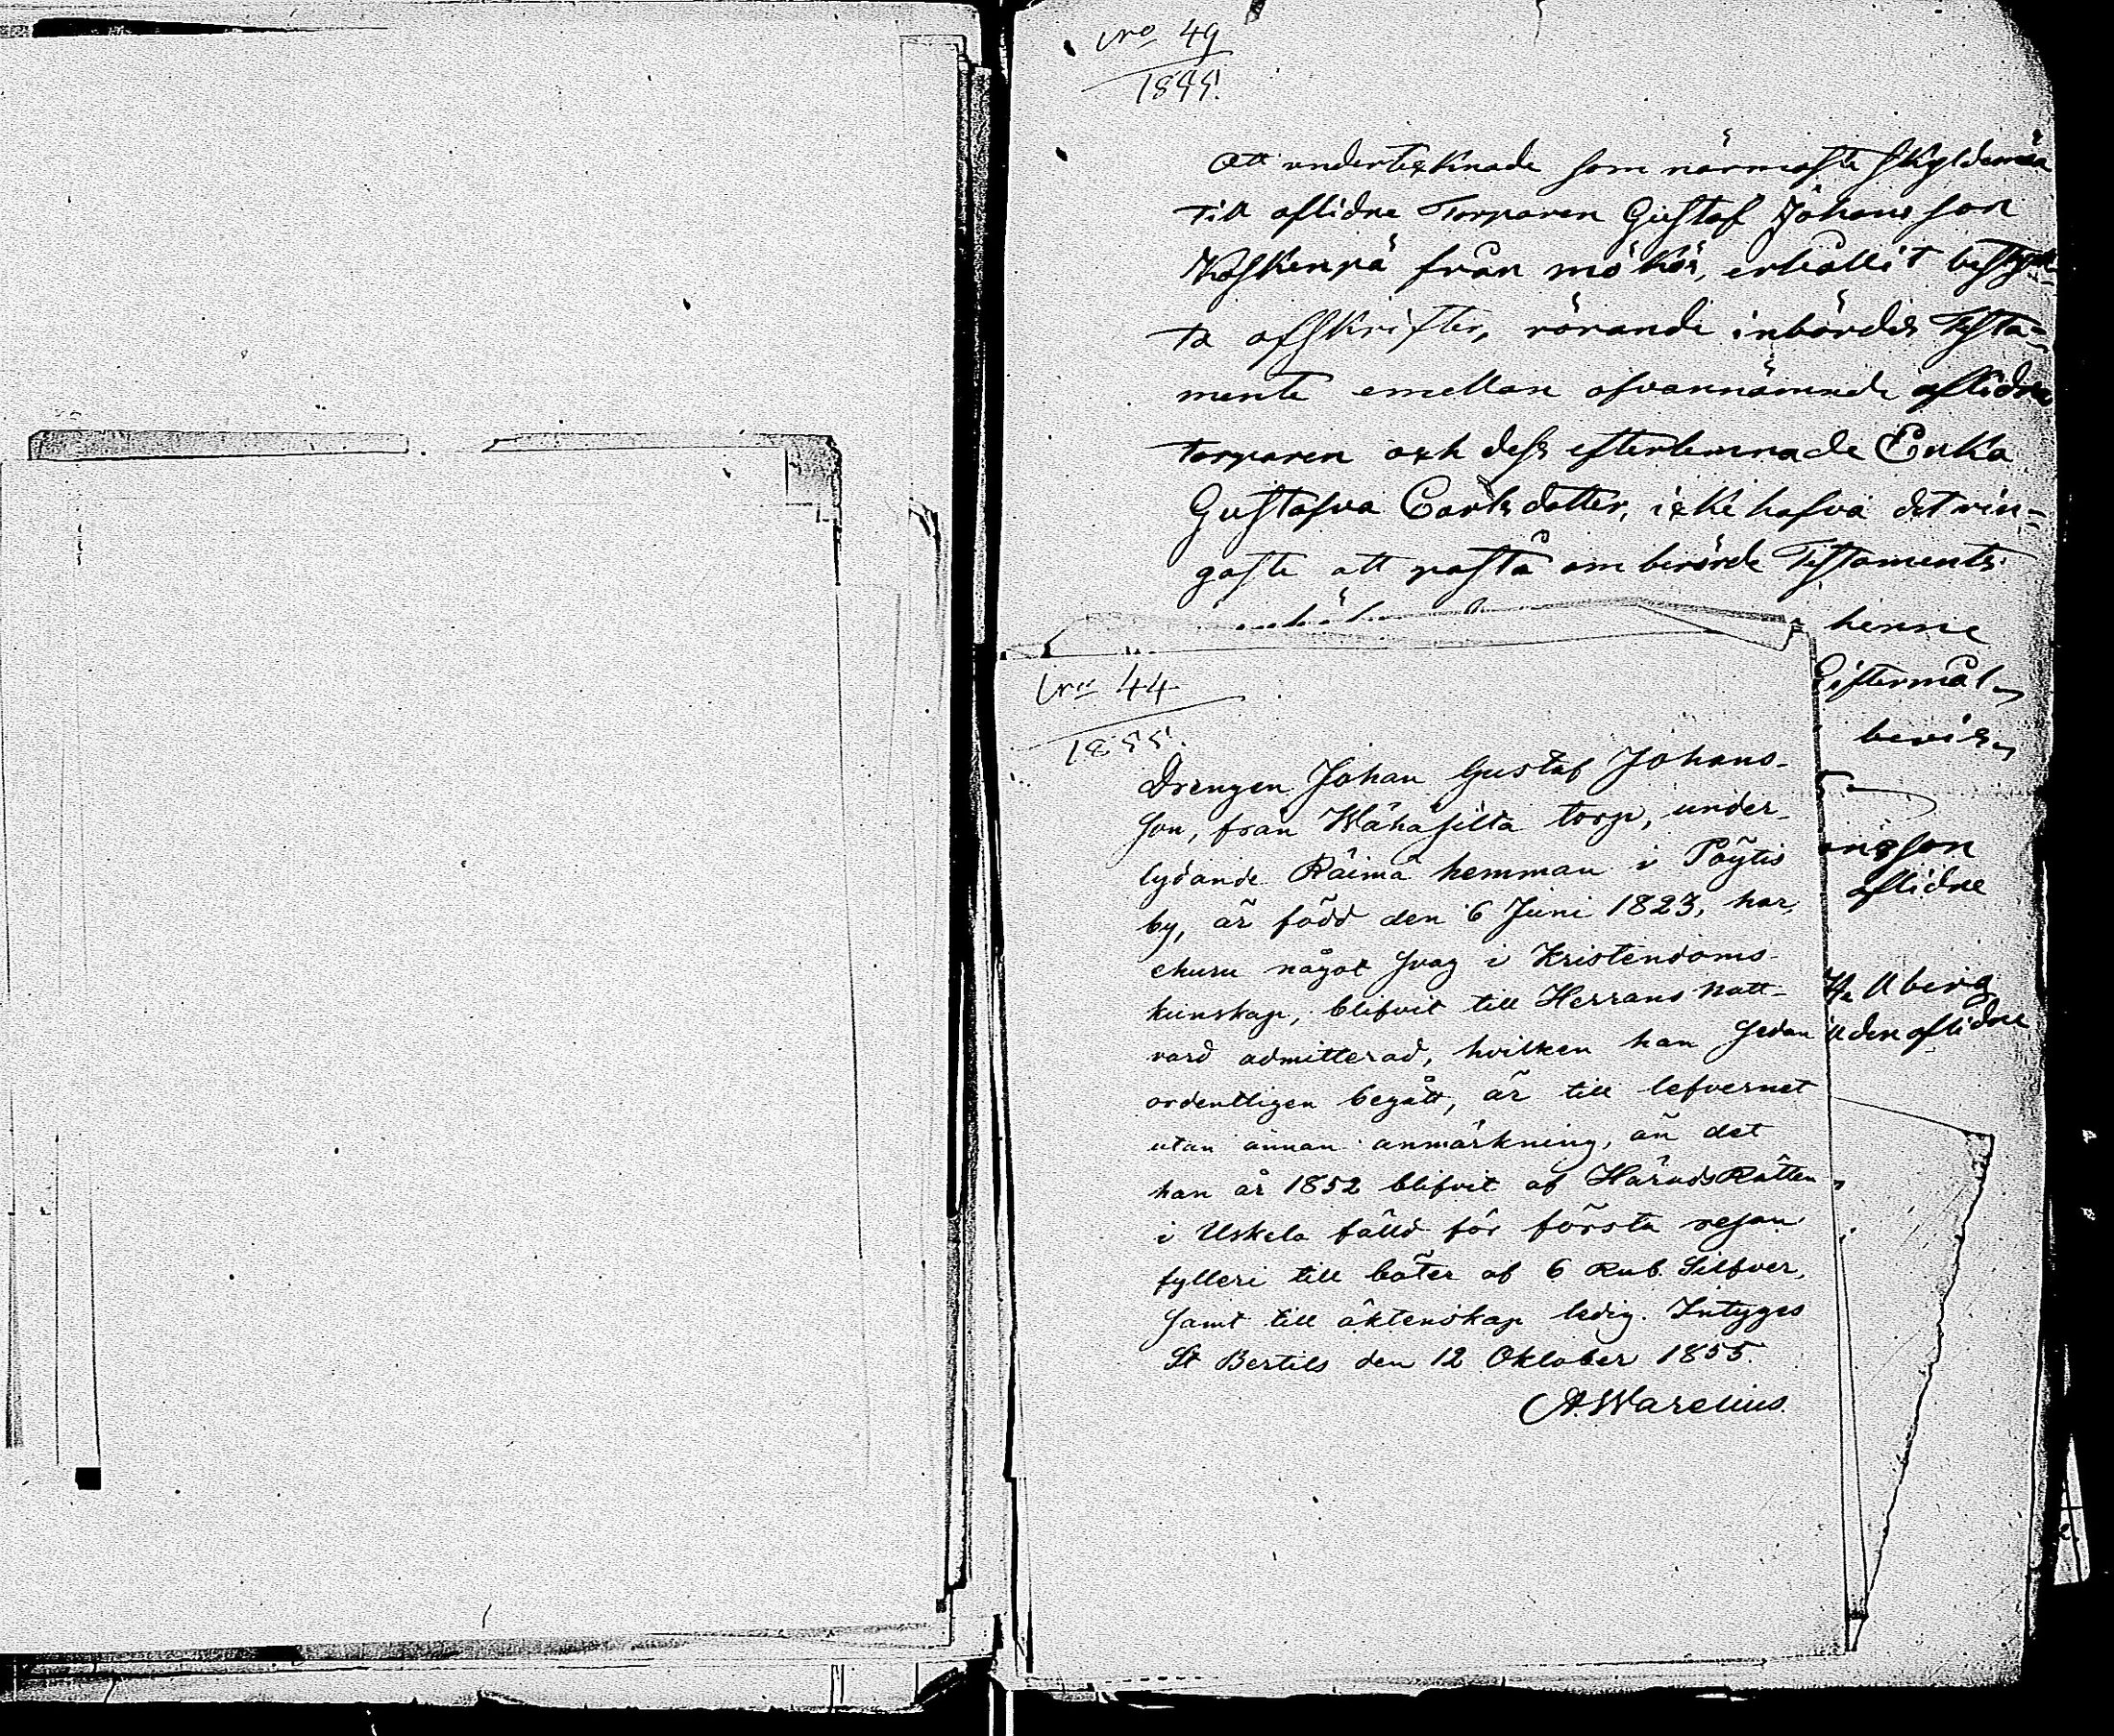 No 49
1855.
Att undertecknade som närmaste skyldemän
till aflidne Torparen Gustaf Johansson
Koskenpä från mökör, erhållit bestyrk-
ta afskrifter, rörande inbördes Testa=
mente emellan ofvannämnde aflidne
torparen och dess efterlemnade Enka
Gustafva Carlsdotter, icke hafva det rin=
gaste att påstå om berörde Testaments
henne
Giftermål,
bevis,
onsson
aflidne
Hallberg
till den aflidne
No 44
1855.
Drengen Johan Gustaf Johans-
son, från Wähäsilta torp, under-
lydande Räimä hemman i Pöytis
by, är född den 6 Juni 1823, har,
ehuru något svag i Kristendoms-
kunskap, blifvit till Herrans Natt-
vard admitterad, hvilken han sedan
ordentligen begått, är till lefvernet
utan annan anmärkning, än det
han år 1852 blifvit af HäradsRätten
i Uskela fälld för första resan
fylleri till böter af 6 Rub. Silfver,
samt till äktenskap ledig. Intygas
St Bertils den 12 Oktober 1855.
A. Warelius.